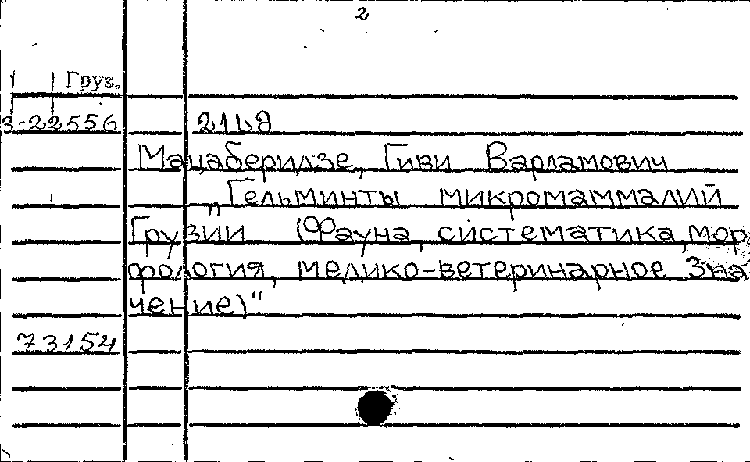 2
Груз.
3-22556
Мацаберидзе, Гиви Варламович
„Гельминты микромаммалий
Грузии (Фауна, систематика, мор
фология, медико-ветеринарное зна
чение)"
73154